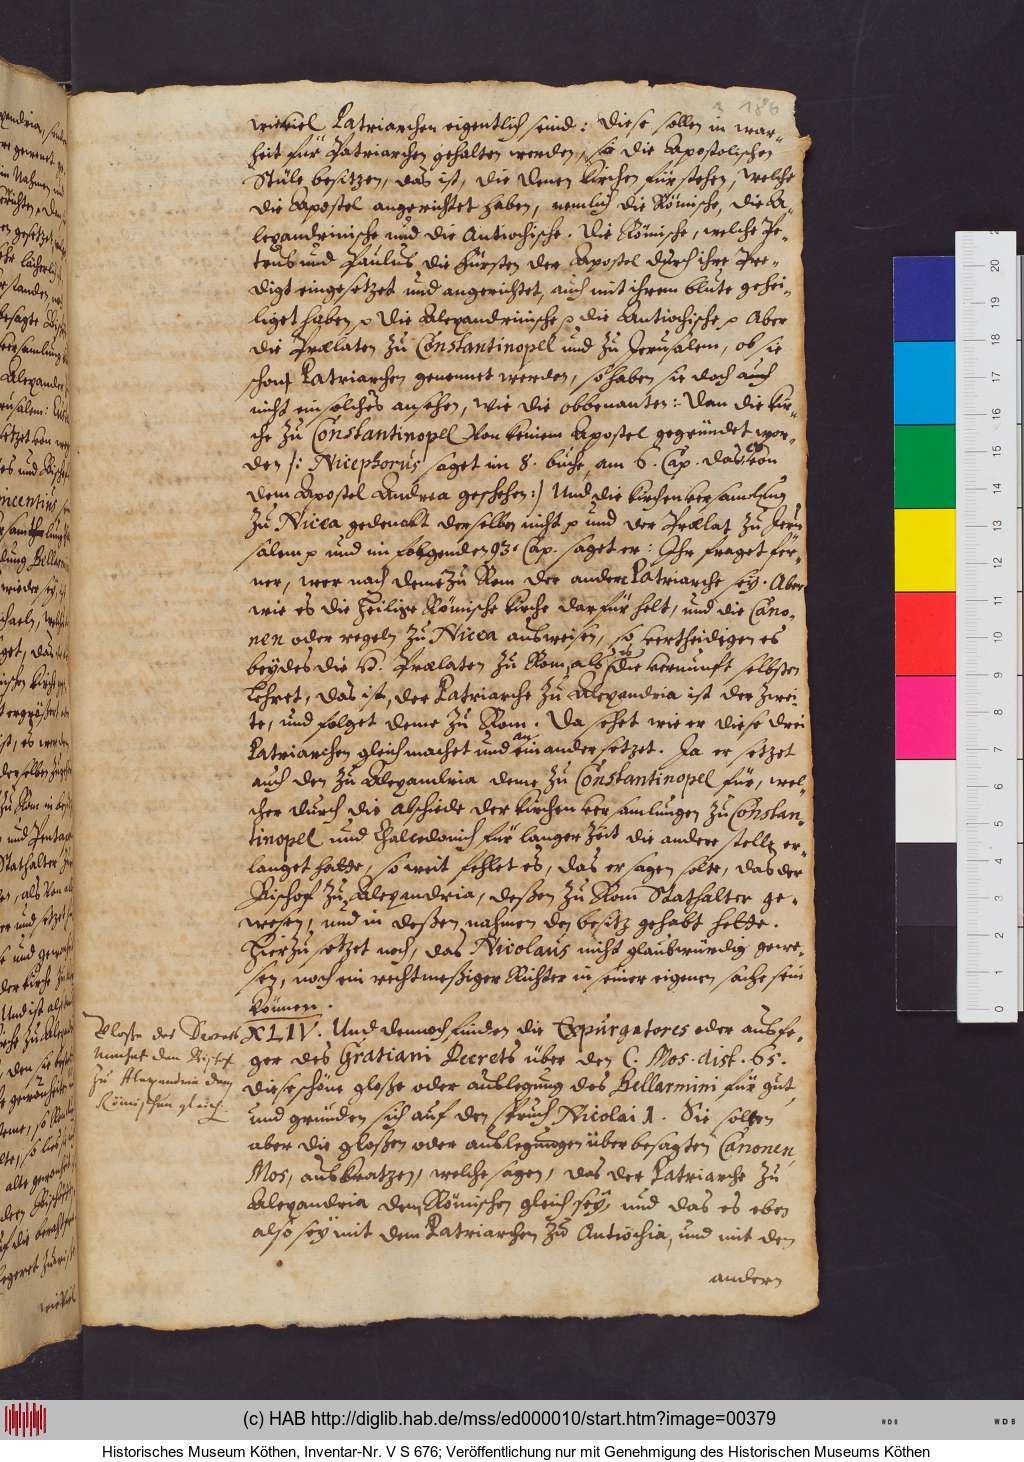 186
wieviel Patriarchen eigentlich seind: diese sollen in war-
heit für Patriarchen gehalten werden, so die Apostolischen
Stüle besitzen, das ist, die denen kirchen fürstehen, welche
die Apostel angerichtet haben, nemlich die Römische, die A-
lexandrinische und die Antiochische. Die Römische, welche Pe-
trus und Paulus die fürsten der Apostel durch ihre Pre-
digt eingesetzet und angerichtet, auch mit ihrem blute gehei-
liget haben, die Alexandrinische, die Antiochische, Aber
die Prælaten zu Constantinopel und zu Jerusalem, ob sie
schon Patriarchen genennet werden, so haben sie doch auch
nicht ein solches ansehen, wie die obbenanten: Dan die kir-
che zu Constantinopel von keinem Apostel gegründet wor-
den /: Nicephorus saget im 8. buche, am 6. Cap. das es von
dem Apostel Andrea geschehen:/ Und die kirchenversamlung
zu Nicea gedenckt derselben nicht und der Prælat zu Jeru
salem und im folgenden 93. Cap. saget er: Ihr fraget fer-
ner, wer nach deme zu Rom der andere Patriarche sey. Aber
wie es die Heilige Römische kirche darfür helt, und die Cano-
nen oder regeln zu Nicea ausweisen, so vertheidigen es
beydes die H. Prælaten zu Rom, als die vernunft selbsten
Lehret, das ist, der Patriarche zu Alexandria ist der zwei-
te, und folget deme zu Rom. Da sehet wie er diese drei
Patriarchen gleich machet und an einander setzet. Ja er setzet
auch den zu Alexandria deme zu Constantinopel für, wel-
cher durch die abschiede der kirchenversamlungen zu Constan-
tinopel und Chalcedonich für langer Zeit die andere stelle er-
langet hatte, so weit fehlet es, das er sagen solte, das der
Bischof zu Alexandria, deßen zu Rom Stathalter ge-
wesen, und in deßen nahmen den besitz gehabt hette.
Hierzu setzet noch, das Nicolaus nicht glaubwürdig gewe-
sen, noch ein rechtmeßiger Richter in seiner eigenen sache sein
können.
Glosse des Decrets
machet den Bischof
zu Alexandria dem
Römischen gleich.
XLIV. Und dennoch finden die Expurgatores oder ausfe-
ger des Gratiani Decrets über den C. Mos. dist. 65.
diese schöne gloße oder auslegung des Bellarmini für gut,
und gründen sich auf den spruch Nicolai 1. Sie solten
aber die gloßen oder auslegungen über besagten Canonen,
Mos, auskratzen, welche sagen, das der Patriarche zu
Alexandria dem Römischen gleich sey, und das es eben
also sey mit dem Patriarchen zu Antiochia, und mit den
andern
(c) HAB http://diglib.hab.de/mss/ed000010/start.htm?image=00379
Historisches Museum Köthen, Inventar-Nr. V S 676; Veröffentlichung nur mit Genehmigung des Historischen Museums Köthen